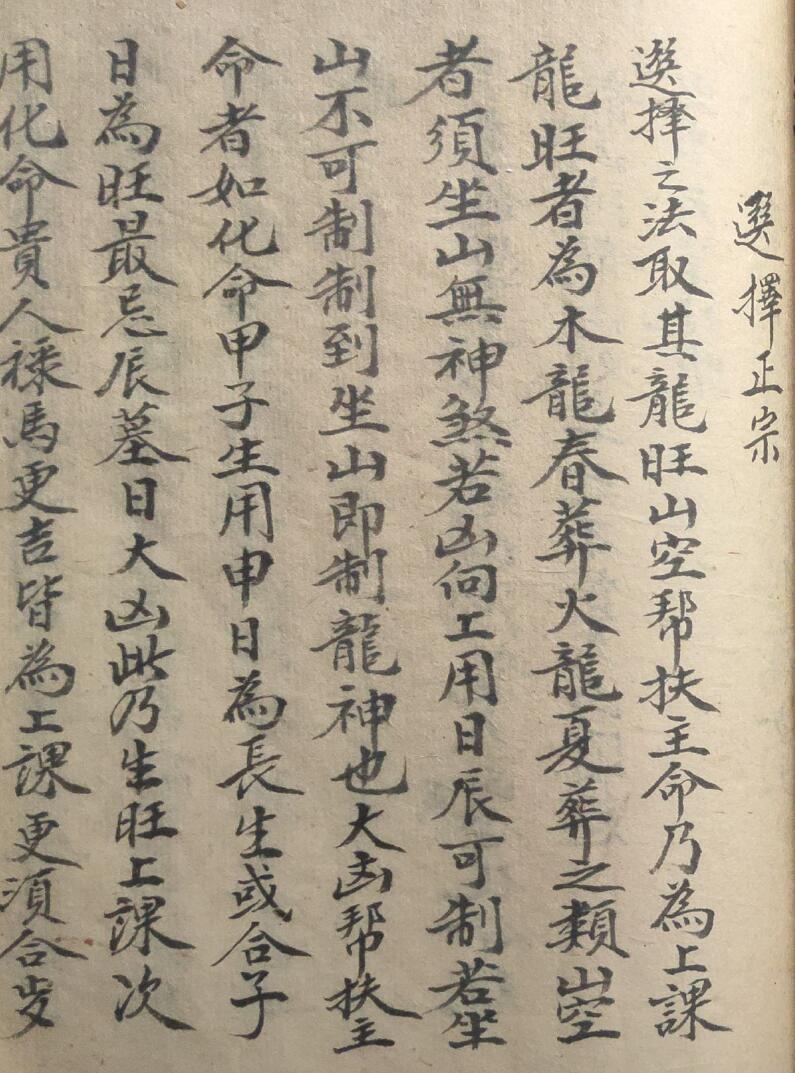 選擇正宗
選擇之法取其龍旺山空幇扶主命乃為上課
龍旺者為木龍春葬火龍夏葬之類山空
者須坐山無神煞若凶向上用日辰可制若坐
山不可制制到坐山即制龍神也大凶幇扶主
命者如化命甲子生用申日為長生或合子
日為旺最忌辰墓日大凶此乃生旺上課次
用化命貴人祿馬更吉皆為上課更須合歩